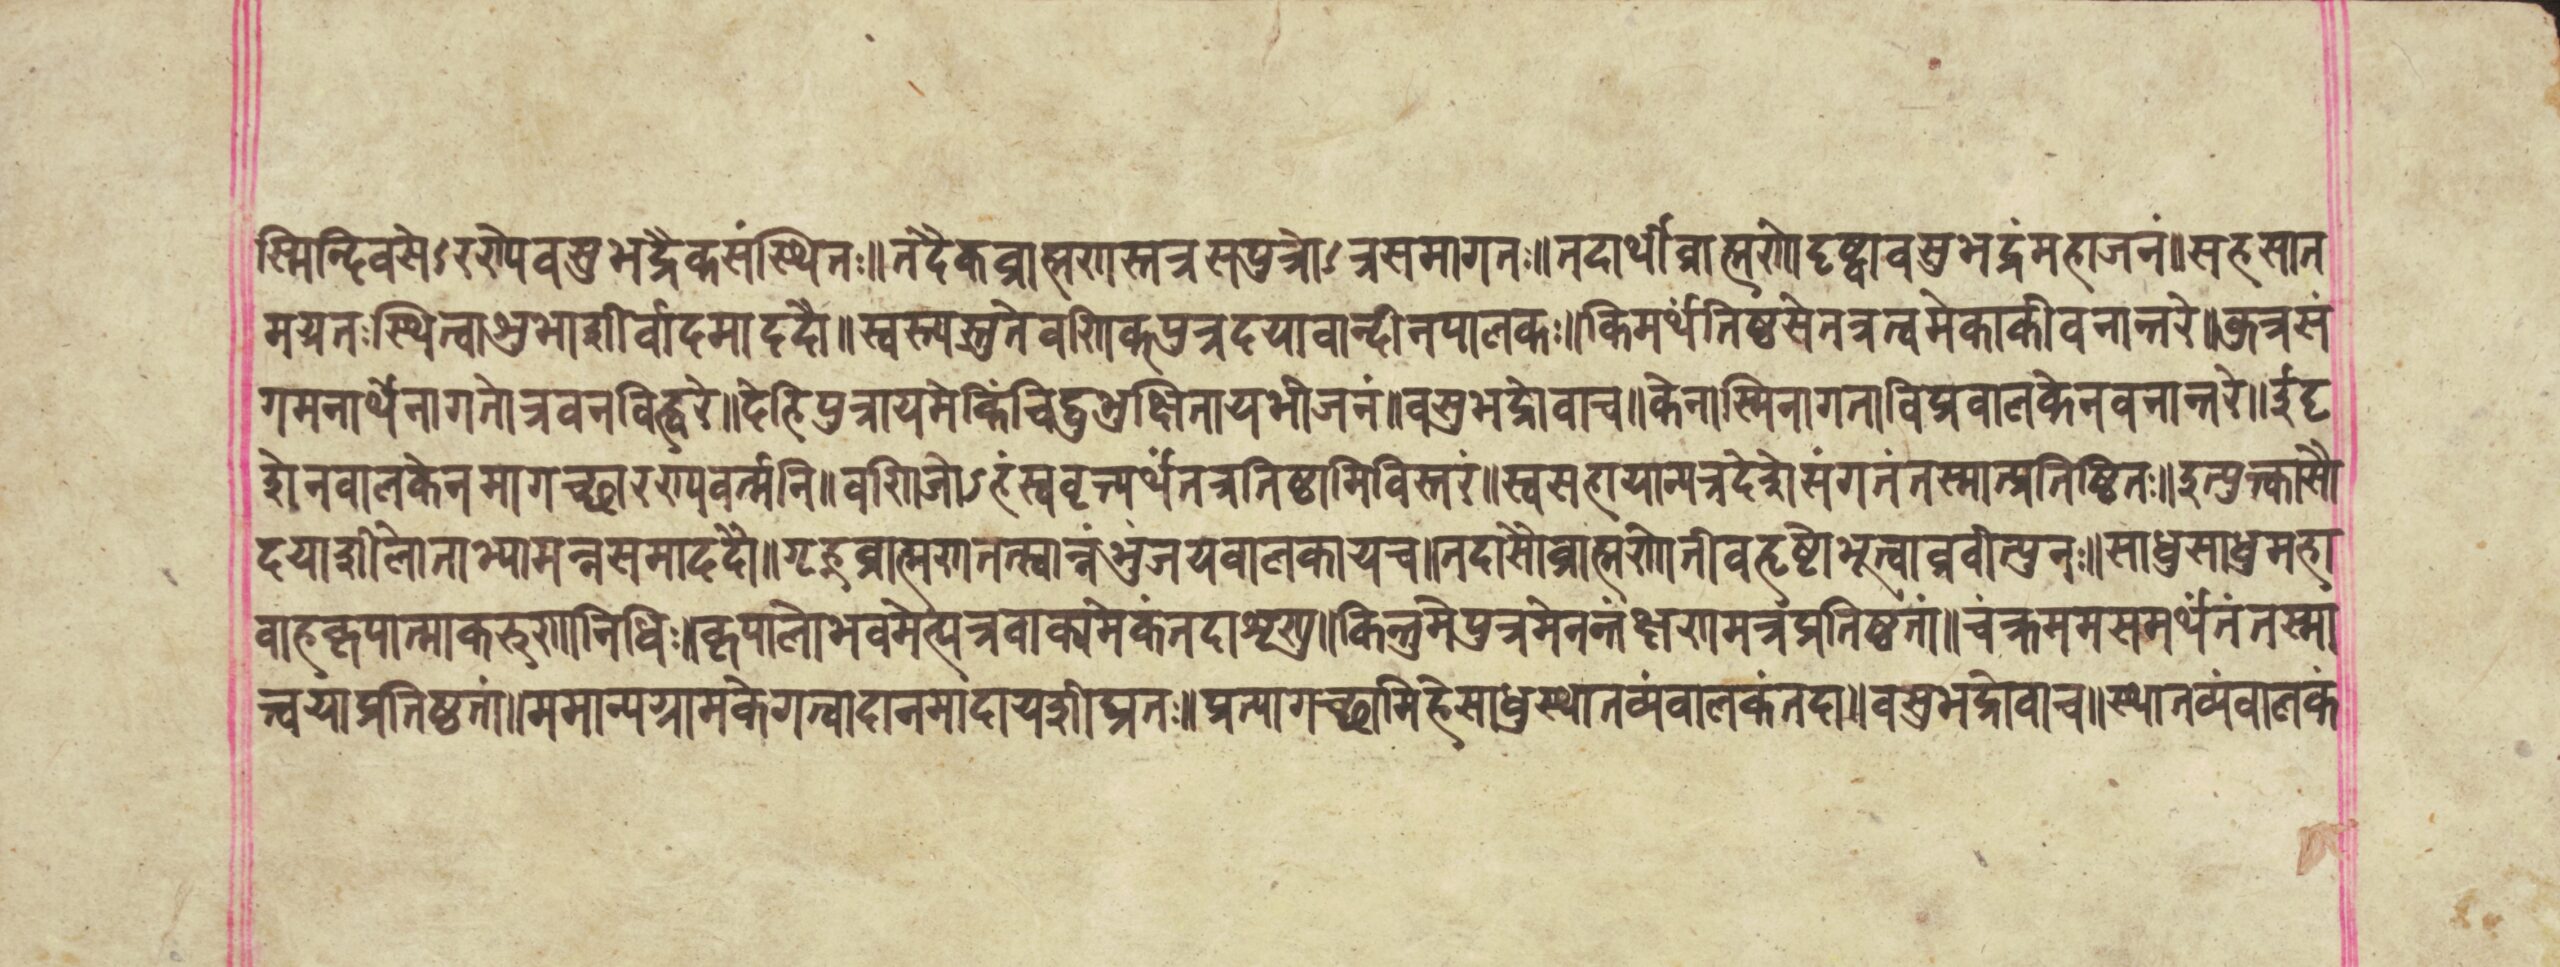 स्मिन्दिवसेऽरण्येवसुभद्रैकसंस्थितः॥तदैकब्राह्मणस्तत्रसपुत्रोऽत्रसमागतः॥तदार्थीब्राह्मणोदृष्ट्वावसुभद्रंमहाजनं॥सहसात
मग्रतःस्थित्वाशुभाशीर्वादमाददौ॥स्वस्त्यस्तुतेवणिक्पुत्रदयावान्दीनपालकः॥किमर्थंतिष्ठसेतत्रत्वमेकाकीवनान्तरे॥कुत्रसं
गमनार्थेनागतोत्रवनविह्वरे॥देहिपुत्रायमेकिंचिद्बुभुक्षितायभोजनं॥वसुभद्रोवाच॥केनास्मिनागताविप्रबालकेनवनान्तरे॥ईदृ
शेनबालकेनमागच्छारण्यवर्त्मनि॥वणिजोऽहंस्ववृत्त्यर्थंतत्रतिष्ठामिविस्तरं॥स्वसहायान्यत्रदेशेसंगतंतस्मात्प्रतिष्ठितः॥इत्युक्त्वासौ
दयाशीलोताभ्यामन्नसमाददौ॥गृह्णब्राह्मणतत्स्वान्नंभुंजयबालकायच॥तदासौब्राह्मणोतीवहृष्टोभूत्वाब्रवीत्पुनः॥साधुसाधुमहा
बाहकृपात्माकरुणानिधिः॥कृपालोभवमेत्यत्रवाक्यमेकंतदाशृणु॥किन्तुमेपुत्रमेतन्तंक्षणमत्रंप्रतिष्ठतां॥चंक्रममसमर्थंतंतस्मा
त्त्वयाप्रतिष्ठतां॥ममान्यग्रामकेगत्वादानमादायशीघ्रतः॥प्रत्यागच्छामिहेसाधुस्थातव्यंबालकंतदा॥वसुभद्रोवाच॥स्थातव्यंबालकं